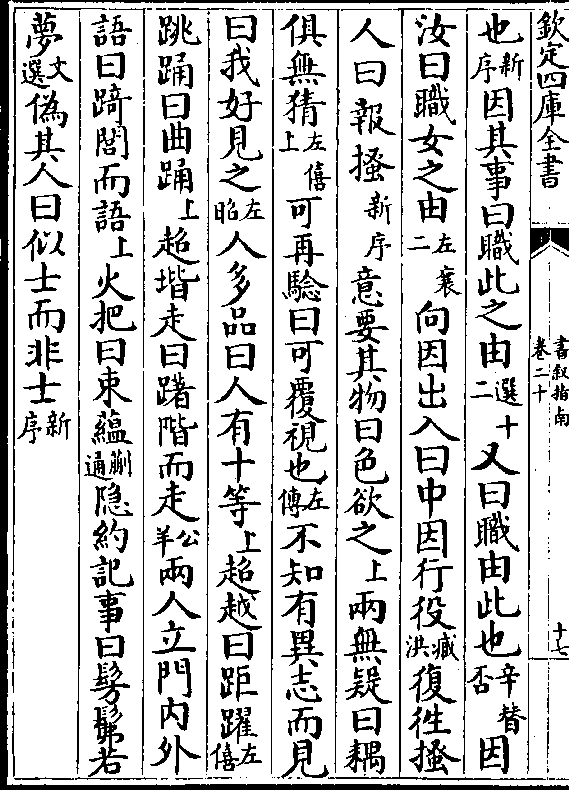 欽定四庫全書
書叙指南
卷二十
十七
也新序因其事曰職此之由選十二又曰職由此也辛替否因
汝曰職女之由左襄二向因出入曰中因行役臧洪復徃搔
人曰報搔新序意要其物曰色欲之上兩無疑曰耦
俱無猜左僖上可再驗曰可覆視也左傳不知有異志而見
曰我好見之左昭人多品曰人有十等上超越曰距躍左僖
跳踊曰曲踊上超堦走曰躇階而走公羊兩人立門内外
語曰踦閭而語上火把曰束藴蒯通隐約記事曰髣髴若
夢文選偽其人曰似士而非士新序